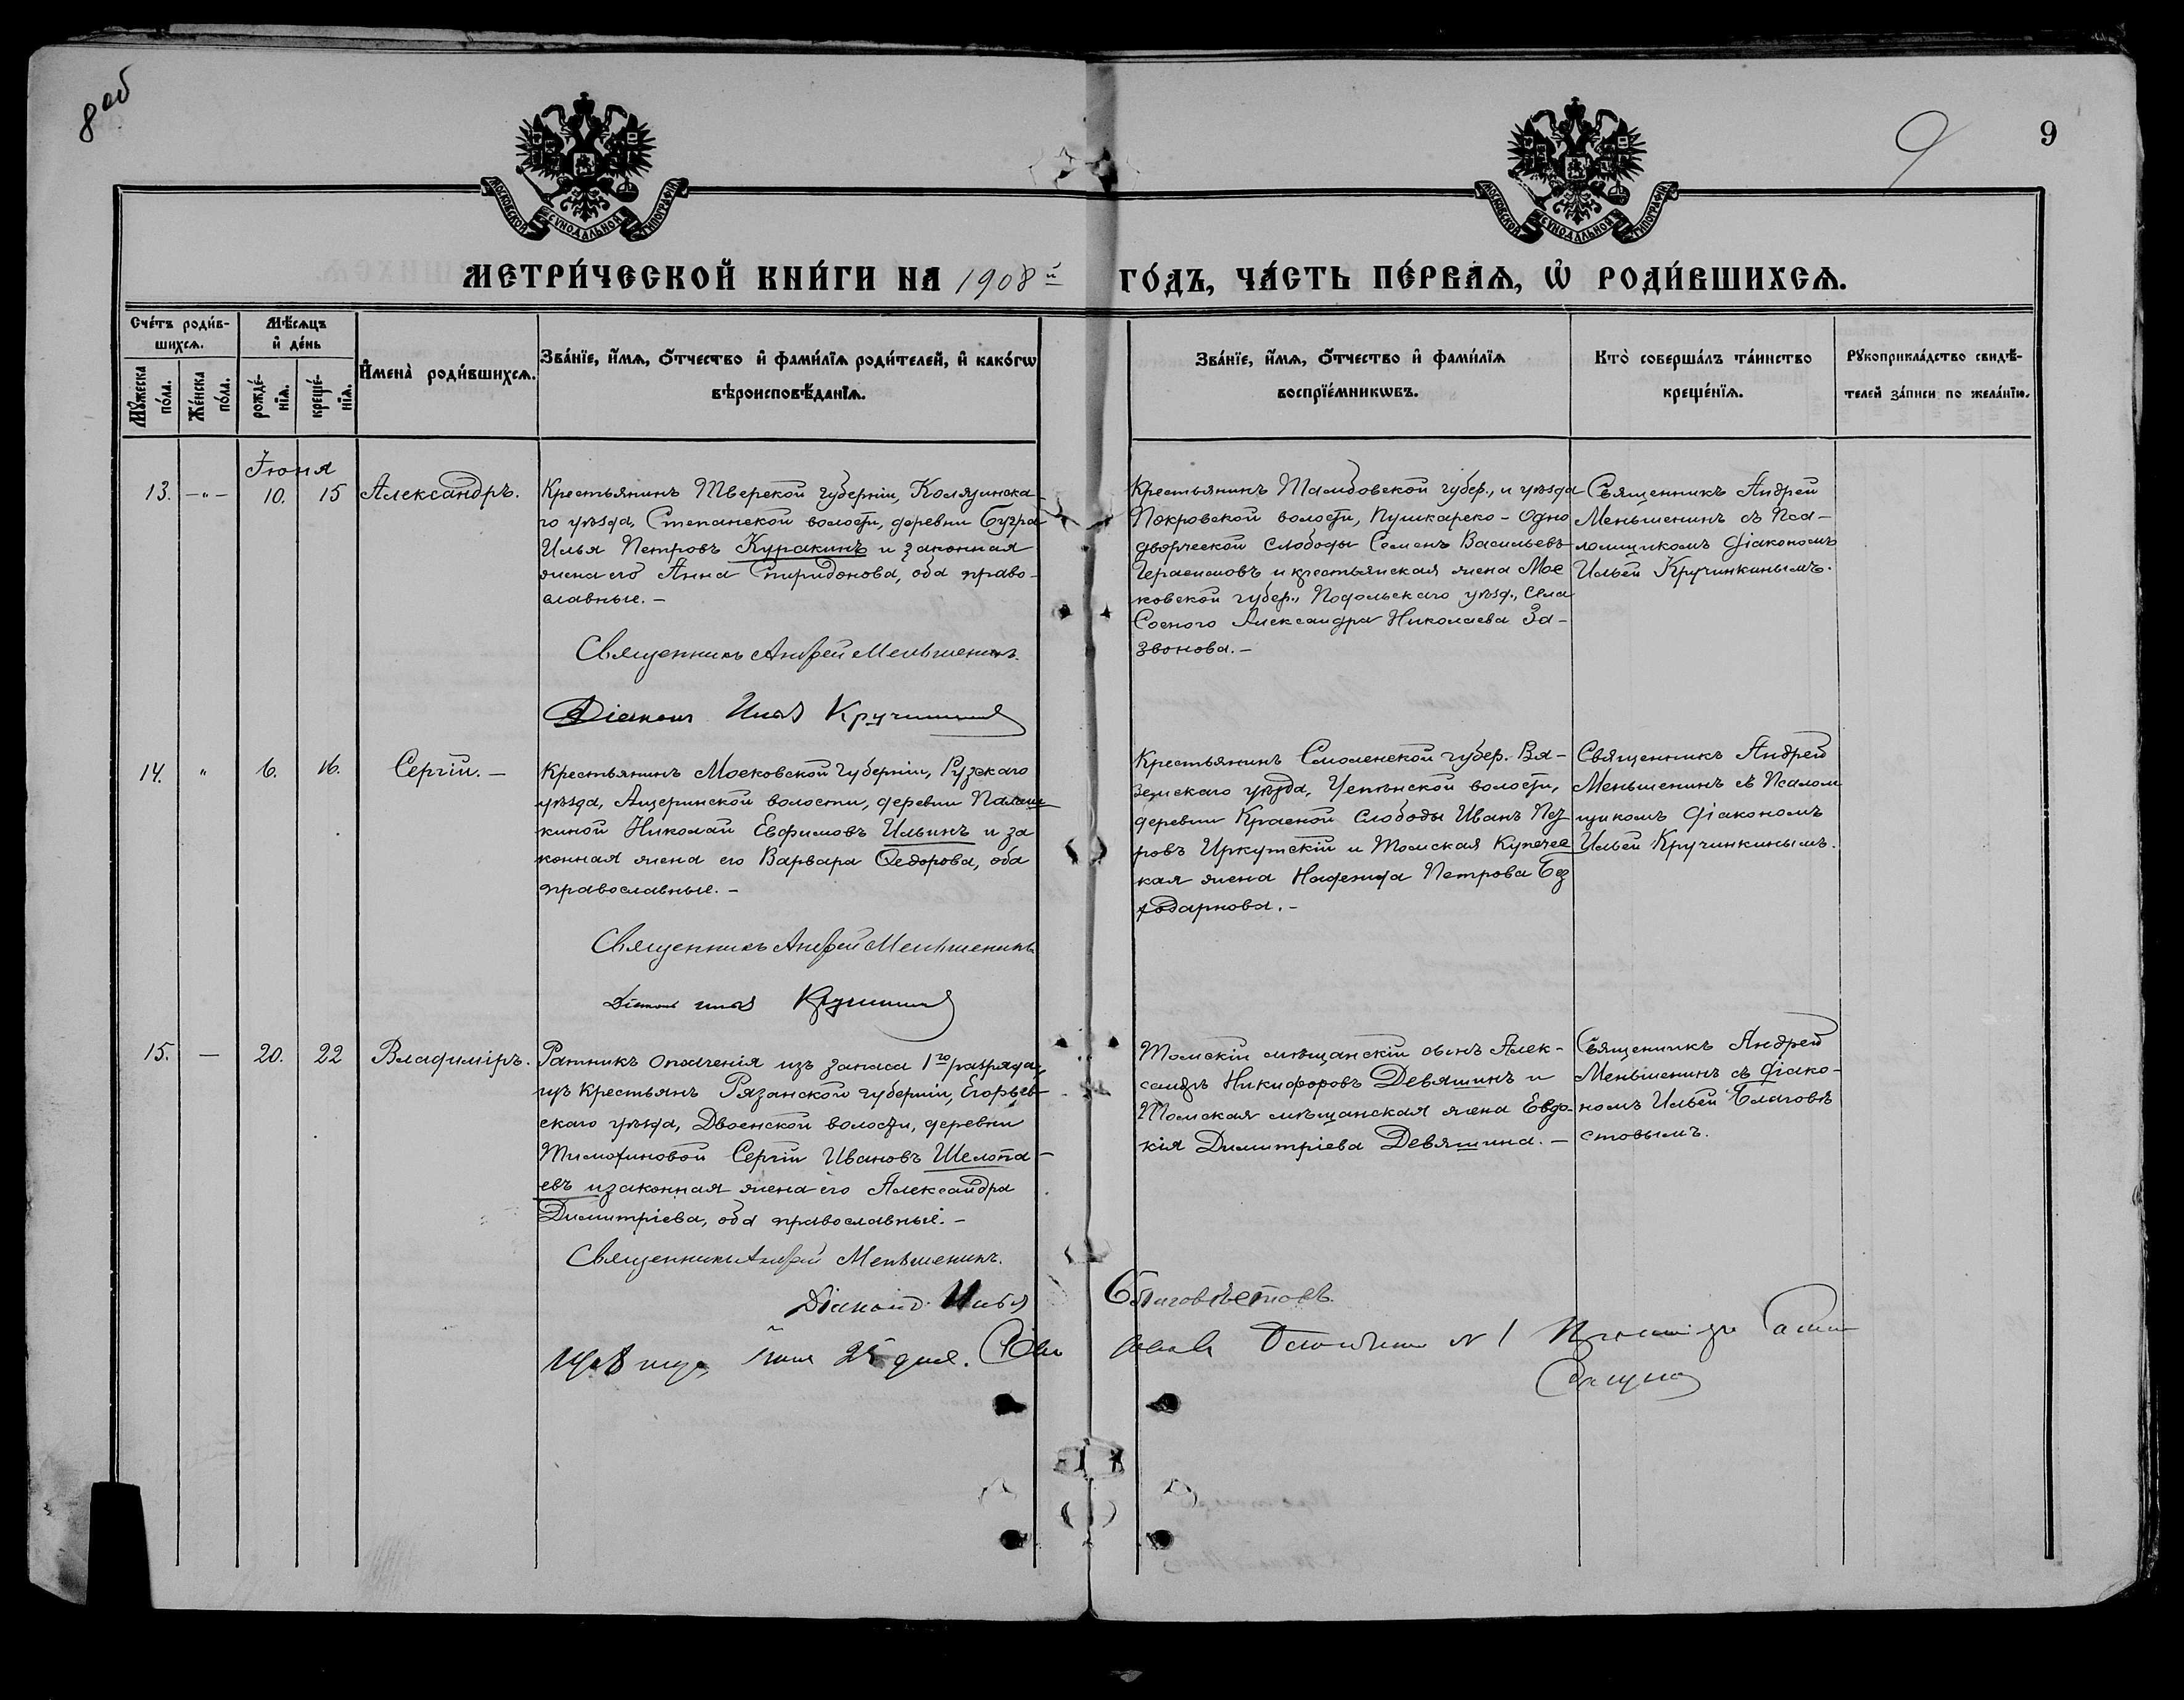 8 об
9
9
МОСКОВСКОЙ СѴНОДАЛЬНОЙ ТИПОГРАФІИ
МОСКОВСКОЙ СѴНОДАЛЬНОЙ ТИПОГРАФІИ
МЕТРИ́ЧЕСКОЙ КНИ́ГИ НА 1908й ГО́ДЪ, ЧА́СТЬ ПЕ́РВАѦ, Ѡ҆ РОДИ́ВШИХСѦ.
Сче́тъ роди́в-
шихсѧ.
Мꙋ́жеска по́ла.
Же́нска по́ла.
Мѣ́сѧцъ
и҆ де́нь
рожде́-
нїѧ.
креще́-
нїѧ.
И҆мена̀ роди́вшихсѧ.
Зва́нїе, и҆́мѧ, ѻ҆́тчество и҆ фами́лїѧ роди́телей, и҆ како́гѡ
вѣроисповѣ́данїѧ.
Зва́нїе, и҆́мѧ, ѻ҆́тчество и҆ фами́лїѧ
воспрїе́мникѡвъ.
Кто̀ соверша́лъ та́инство
креще́нїѧ.
Рꙋкоприкла́дство свидѣ́-
телей за́писи по жела́нїю.
Іюня
13. -"- 10. 15 Александръ.
Крестьянинъ Тверской губерніи, Колязинска-
го уѣзда, Степанской волости, деревни Бугра
Илья Петровъ Куракинъ и законная
жена его Анна Спиридонова, оба право-
славные. -
Священникъ Андрей Меньшенинъ.
Діаконъ Илья Кручинкинъ
Крестьянинъ Тамбовской губер., и уѣзда
Покровской волости, Пушкарско-Одно
дворческой слободы Семенъ Васильевъ
Герасимовъ и крестьянская жена Мос
ковской губер., Подольскаго уѣзд., села
Сосного Александра Николаева За-
звонова. -
Священникъ Андрей
Меньшенинъ съ Пса-
ломщикомъ діакономъ
Ильей Кручинкинымъ.
14. " 6. 16. Сергій. -
Крестьянинъ Московской губерніи, Рузскаго
уѣзда, Ащеринской волости, деревни Палаш
киной Николай Евфимовъ Ильинъ и за
конная жена его Варвара Ѳедорова, оба
православные. -
Священникъ Андрей Меньшенинъ
Діаконъ Илья Кручинкинъ
Крестьянинъ Смоленской губер. Вя-
земскаго уѣзда, волости,
деревни Красной Слободы Иванъ Пет
ровъ Иркутскій и Томская Купечес
кая жена Надежда Петрова

Священникъ Андрей
Меньшенинъ съ Псалом
щикомъ діакономъ
Ильей Кручинкинымъ.
15. - 20. 22 Владиміръ.
Ратникъ ополченія изъ запаса 1го разряда,
изъ крестьянъ Рязанской губерніи, Егорьев
скаго уѣзда, Двоенской волости, деревни
Тимохиновой Сергій Ивановъ Шелопа-
евъ и законная жена его Александра
Димитріева, оба православные. -
Священникъ Андрей Меньшенинъ.
Діаконъ Илья Благовѣстовъ.
Томскій мѣщанскій сынъ Алек-
сандръ Никифоровъ Девяшинъ и
Томская мѣщанская жена Евдо-
кія Димитріева Девяшина. -
Священникъ Андрей
Меньшенинъ съ діако-
номъ Ильей Благовѣ
стовымъ.
1908 года, Іюня 25 дня. № 1